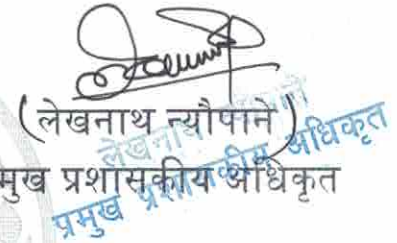 (लेखनाथ न्यौपाने)
मुख प्रशासकीय अधिकृत
लेखनाथ
प्रमुख प्रशासकीय अधिकृत